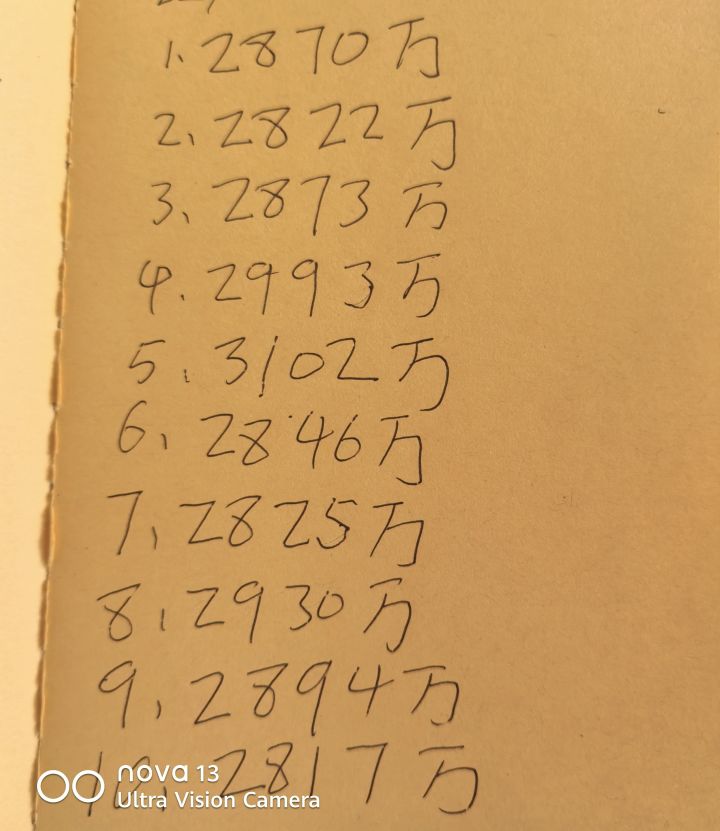 1. 2870万
2、2822万
3、2873万
4. 2993万
5. 3102万
6、2846万
7、2825万
8、2930万
9、2894万
10、2817万
nova 13
Ultra Vision Camera